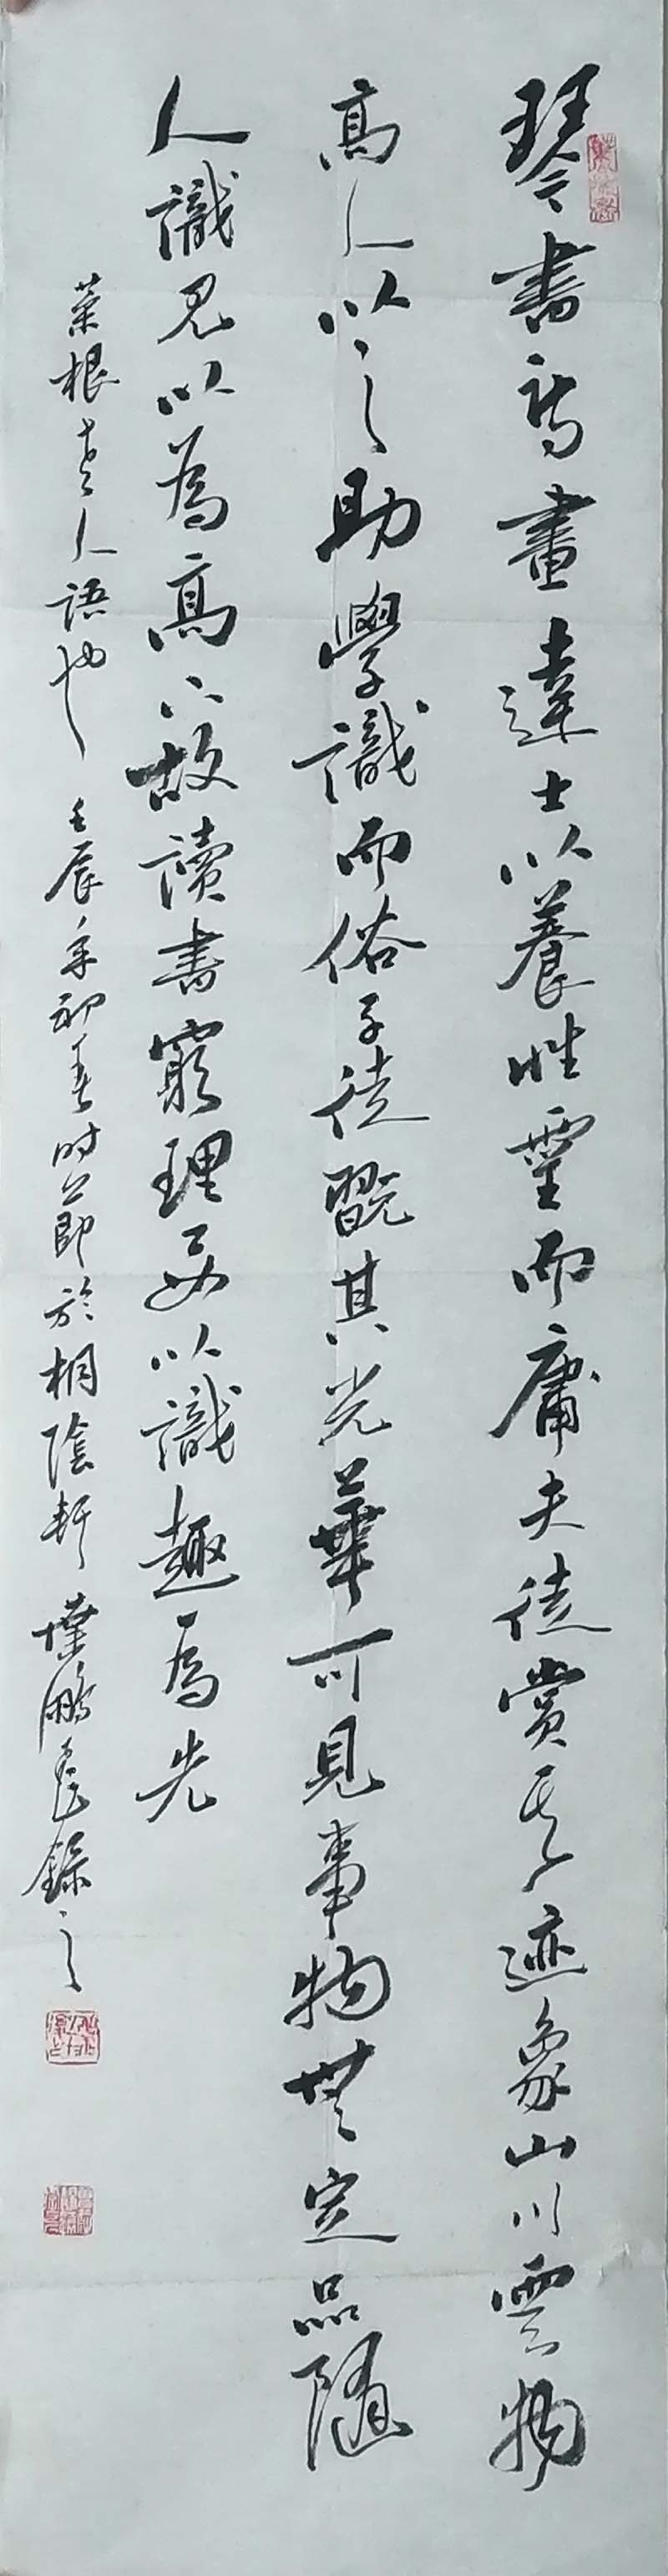 琴書詩畫達士以養性靈而庸夫徒賞其迹象山川雲物
高人以之助學識而俗子徒翫其光華可見事物無定品隨
人識見以為高下故讀書窮理要以識趣為先
菜根老人語也 壬辰年初春時節於桐陰軒 葉鵬飛錄之